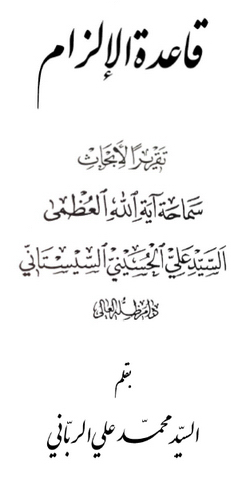 قاعدة الإلزام
تقريرًا لأبحاث
سماحة آية الله العظمى
السيد علي الحسيني السيستاني
دام ظله العالي
بقلم
السيّد محمّد علي الربّاني